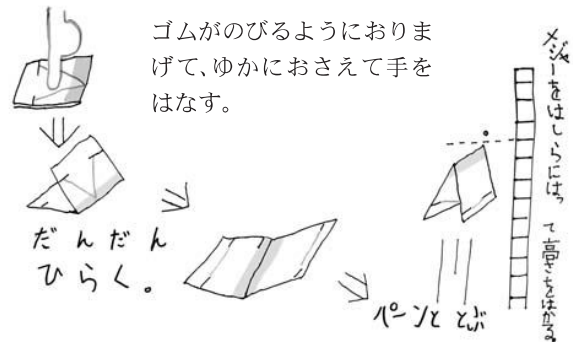 ゴムがのびるようにおりま
げて、ゆかにおさえて手を
はなす。
だんだん
ひらく。
パーンと とぶ
メジャーをはしらにはって高さをはかる。